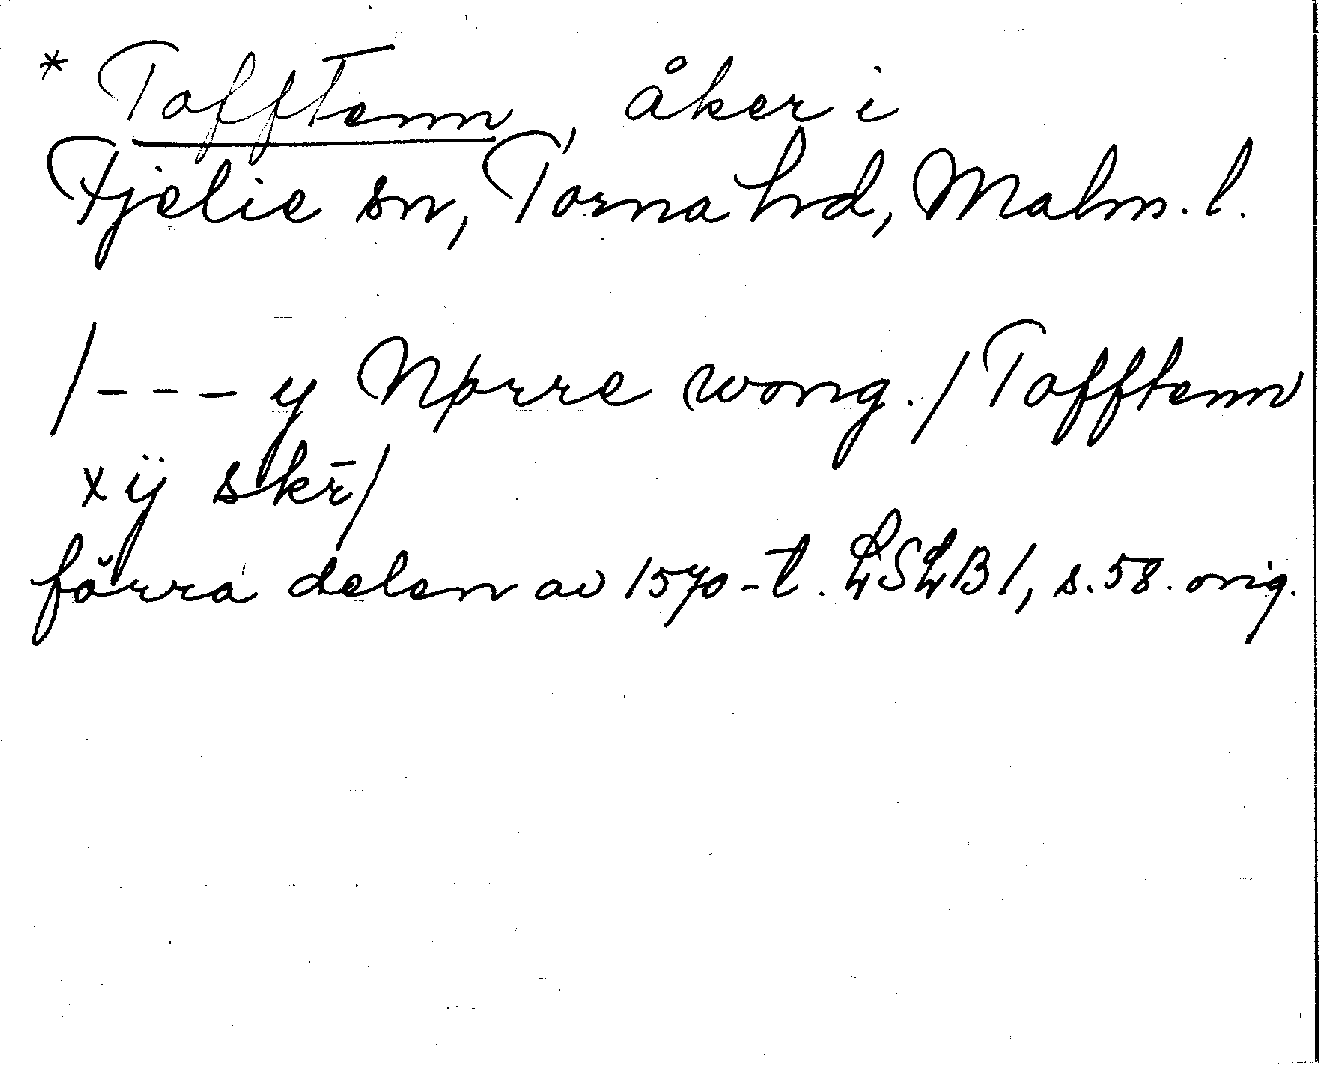 * Tofftenn, åker i
Fjelie sn, Torna hrd, Malm. l.
/--- y Nørre wong. / Tofftenn
xÿ skr̄/
förra delen av 1570-t. LSLB 1, s. 58. orig.